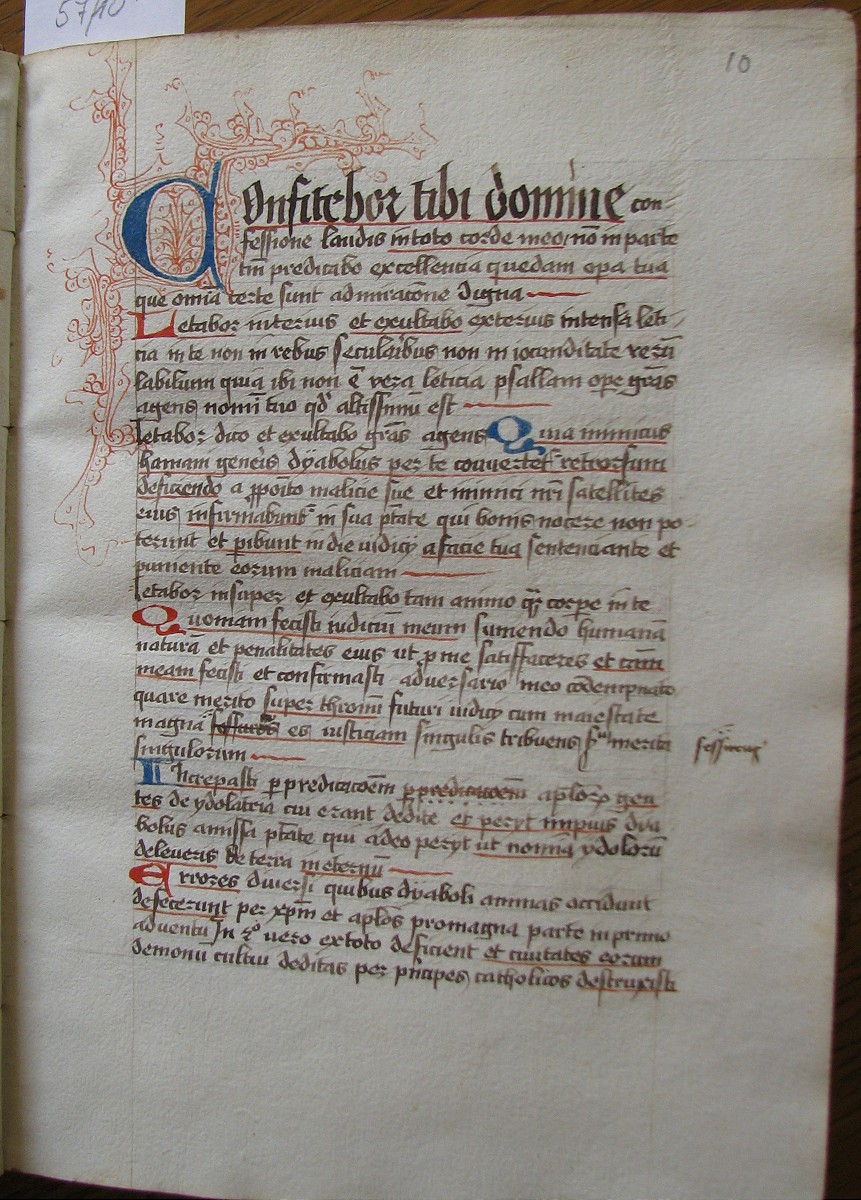 57/10
10
Confitebor tibi domine con-
fessione laudis in toto corde meo, nō in parte
tm̄ predicabo excellencia quedam opa tua
que omīa certe sunt admiracōne digna
Letabor interius et exultabo exterius intensa leti-
cia in te non in rebus secularibus non in iocunditate rerū
labilium quia ibi non ē vera leticia psallam ope grās
agens nomī tuo qd' altissimū est
letabor dico et exultabo grās agens Quia inimicus
humani generis dyabolus per te convertet' retrorsum
deficiendo a ꝓpoīto malicie sue et inimici nr̄i satellites
eius infirmabunt' in sua ptāte qui bonis nocere non po-
terunt et ꝑibunt in die iudicij a facie tua sentenciante et
puniente eorum maliciam
letabor insuper et exultabo tam animo qr̄ corpe in te
Quoniam fecisti iudiciū meum sumendo humanā
naturā et penalitates eius ut ꝓ me satisffaceres et cām
meam fecisti et confirmasti adversario meo cōdempnato
quare merito super thronū futuri iudicij cum maiestate
magna es iusticiam singulis tribuens merita
singulorum
Increpasti ꝑ predicacōem ꝑ predicacōem aplorꝝ gen
tes de ydolatria cui erant dedite et perijt impius dya
bolus amissa ptāte qui adeo perijt ut nomīa ydolorū
deleveris de terra in eternū
Errores diversi quibus dyaboli animas occidunt
defecerunt per xpm̄ et aplōs pro magna parte in primo
adventu In 2° vero ex toto deficient et civitates eorum
demonū cultui deditas per pn̄cipes catholicos destruxisti